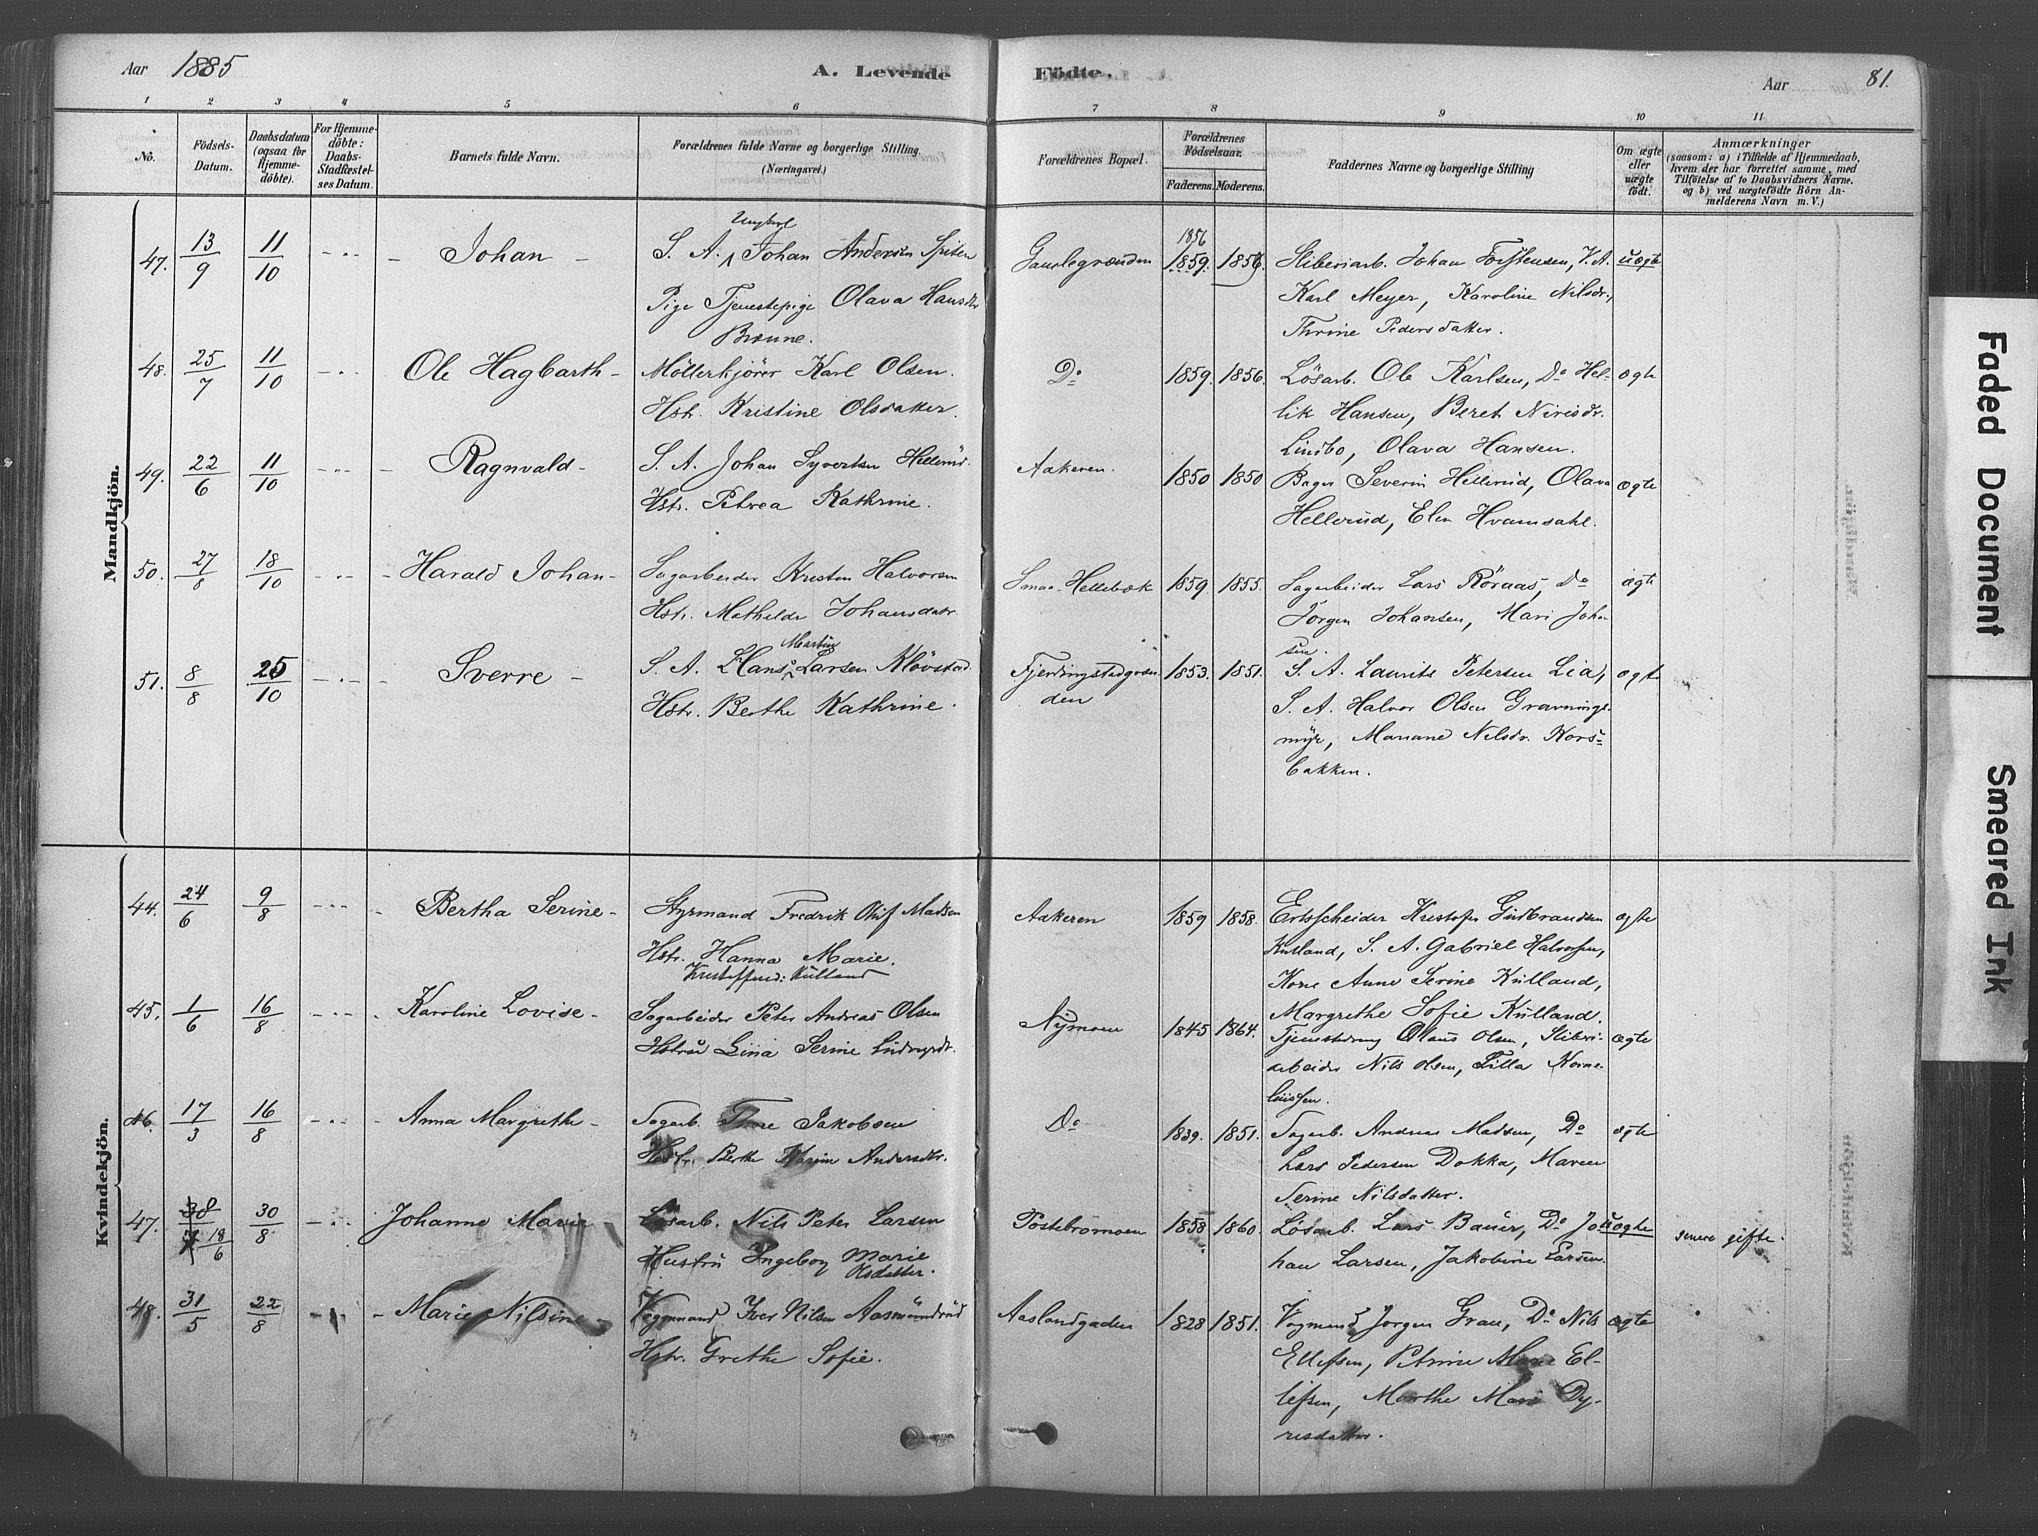 Aar 1885
A. Levende Födte.
Aar
81.
1 2 3 4 5 6 7 8 9 10 11
No.
Födsels-Datum.
Daabsdatum (ogsaa for Hjemme-döbte).
For Hjemme-döbte: Daabs-Stadfæstel-ses Datum.
Barnets fulde Navn.
Forældrenes fulde Navne og borgerlige Stilling. (Næringsvei.)
Forældrenes Bopæl.
Forældrenes Födselsaar.
Faderens. Moderens.
Faddernes Navne og borgerlige Stilling
Om ægte eller uægte födt.
Anmærkninger
(saasom: a) i Tilfælde af Hjemmedaab,
hvem der har forrettet samme, med
Tilföielse af to Daabsvidners Navne.
og b) ved uægtefödte Börn An-
melderens Navn m. V.)
Mandkjön.
Ungkarl 1856
47. 13/9 11/10 - Johan - S. A. Johan Andersen Spiten Gamlegrænden 1859. 1856. Sliberiarb. Johan Torstensen, V. A. uægte
Pige Tjenestepige Olava Hansdtr Karl Meyer, Karoline Nilsdr.,
Brænne. Thrine Pedersdatter.
48. 25/7 11/10 Ole Hagbarth - Möllerkjörer Karl Olsen. Do 1859. 1856. Lösarb. Ole Karlsen, Do Hel- ægte
Hstr. Kristine Olsdatter. lik Hansen, Beret Nirisdr.
Lindbo, Olava Hansen.
49. 22/6 11/10 Ragnvald - S. A. Johan Syvertsen Hellerud Aakeren. 1850 1850 Bager Severin Hellerud, Olava ægte
Hstr. Petrea Kathrine. Hellerud, Elen Hvamsahl.
50. 27/8 18/10 Harald Johan - Sagarbeider Kristen Halvorsen Smaa-Hellebæk 1859 1855. Sagarbeider Lars Röraas, Do ægte
Hstr. Mathilde Johansdatr. Jörgen Johansen, Mari Johan
sen.
Martin
51. 8/8 25/10 Sverre - S. A. Hans Larsen Klövstad Fjerdingstadgræn 1853. 1851. S. A. Laurits Petersen Lia, ægte
Hstr. Berthe Kathrine. den S. A. Halvor Olsen Gravnings-
myr, Mariane Nilsdr. Kors-
bakken.
Kvindekjön.
44. 24/6 9/8 Bertha Serine - Styrmand Fredrik Olif Madsen Aakeren 1859 1858. Ertsscheider Kristofer Gudbrandsen ægte
Hstr. Hanna Marie. Kulland, S. A. Gabriel Halvorsen,
Kristoffersd: Kulland Kone Anne Serine Kulland,
Margrethe Sofie Kulland.
45. 1/6 16/8 Karoline Lovise - Sagarbeider Peter Andreas Olsen Nymoen 1845 1864. Tjenestedreng Olaus Olsen, Sliberi- ægte
Hstru Lina Serine Ludvigsdr. arbeider Nils Olsen, Tilla Korne-
liussen.
46. 17/3 16/8 Anna Margrethe - Sagarb. Thore Jakobsen Do 1839. 1851. Sagarb. Andreas Madsen, Do ægte
Hstr. Berthe Karine Andersdtr. Lars Pedersen Dokka, Maren
Serine Nilsdatter.
47. 18/6 30/8 Johanne Marie Lösarb. Nils Peter Larsen Postebromoen 1858 1860. Lösarb. Lars Bauer, Do Jo- uægte senere gifte.
Hustru Ingeborg Marie han Larsen, Jakobine Larsen.
Olsdatter.
48. 31/5 22/8 Marie Nilsine - Vognmand Iver Nilsen Aasmundrud Aaslandgaden 1828 1851. Vogmand Jörgen Grau, Do Nils ægte
Hstr. Grethe Sofie. Ellefsen, Petrine Marie El-
lefsen, Marthe Marie Dy-
resdatter.
Faded Document
Smeared Ink